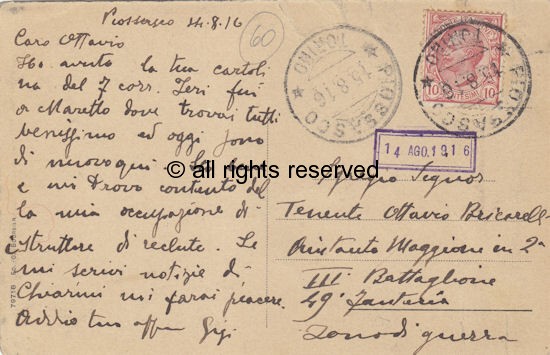 Piossasco 14.8.16
60
Caro Ottavio
Ho avuto la tua cartoli
na del 7 corr. Ieri fui
a Maretto dove trovai tutti
benissimo ed oggi sono
di nuovo qui.
e mi trovo contento del
la mia occupazione di
istruttore di reclute. Se
mi scrivi notizie di
Chiarini mi farai piacere
Addio tuo Gigi
PIOSSASCO
TORINO
15.8.16
PIOSSASCO
TORINO
15.8.16
10 10
14 AGO.1916
© all rights reserved
Egregio Signor
Tenente Ottavio Bricarelli
Aiutante Maggiore in 2ª
III Battaglione
49º Fanteria
Zona di guerra